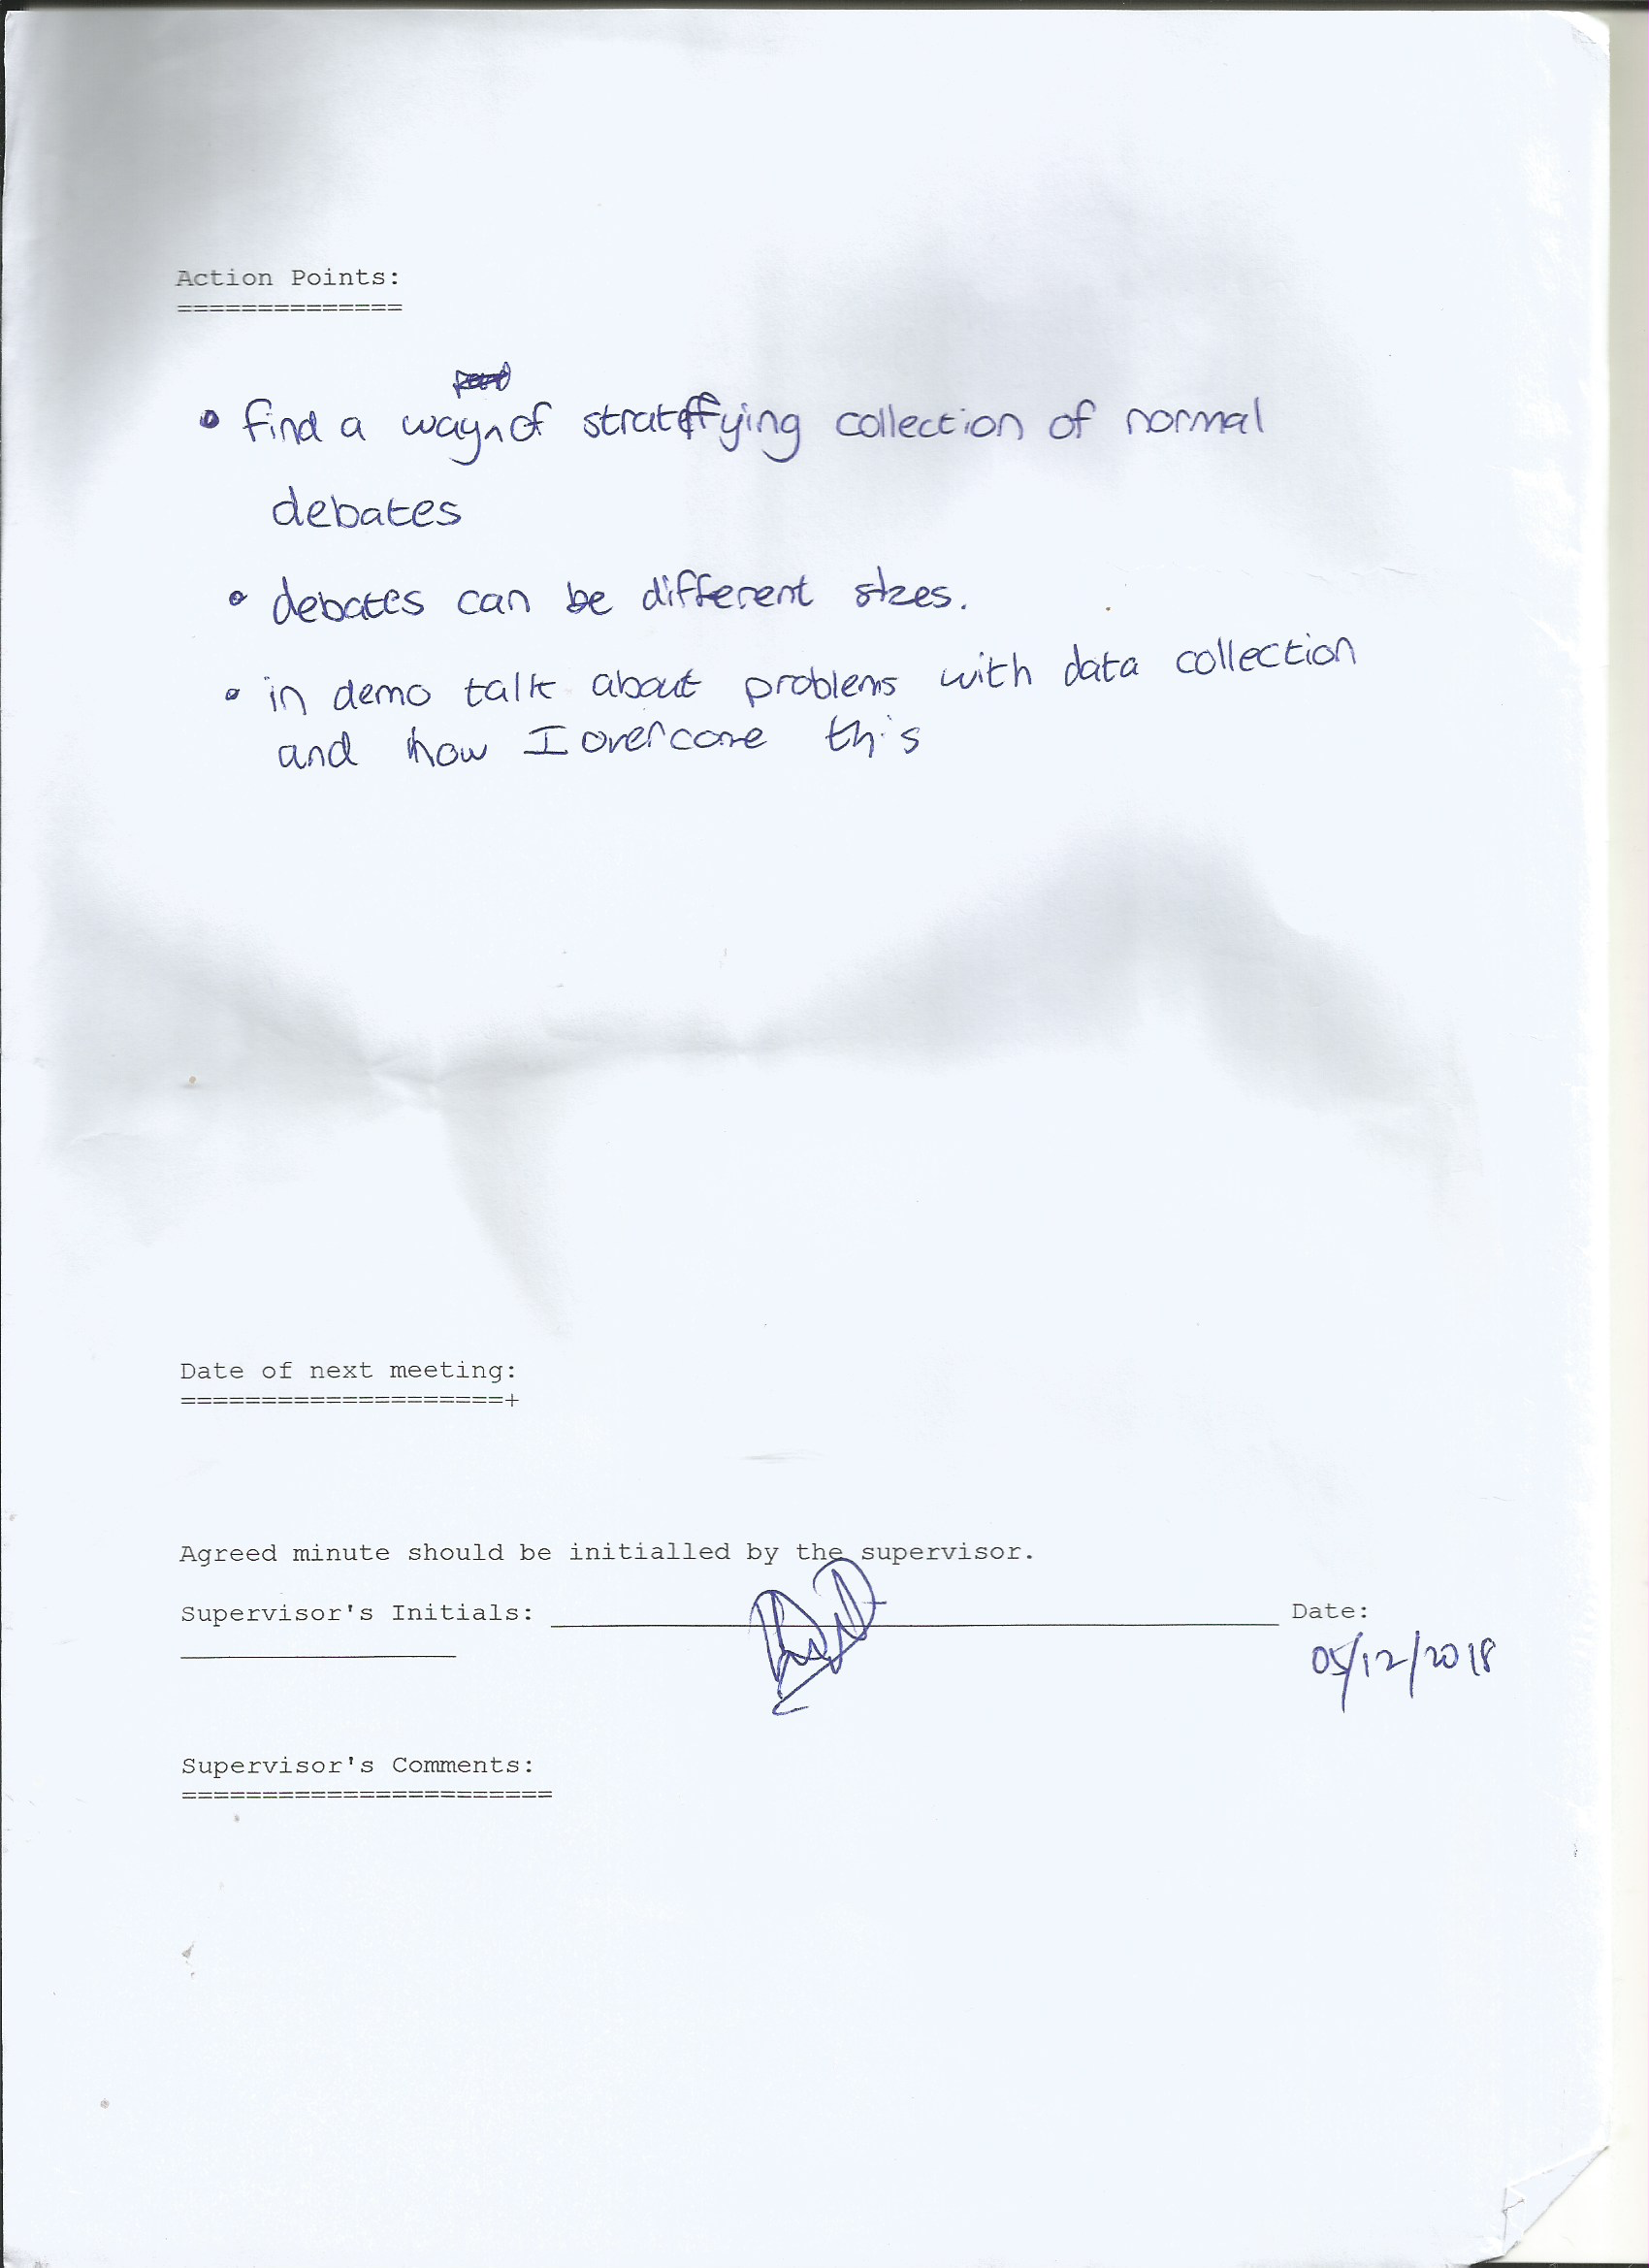 Action Points:
==============
• find a way of stratifying collection of normal
debates
• debates can be different sizes.
• in demo talk about problems with data collection
and how I overcome this
Date of next meeting:
====================+
Agreed minute should be initialled by the supervisor.
Supervisor's Initials: ____________________ Date:
____________________
05/12/2018
Supervisor's Comments:
=======================